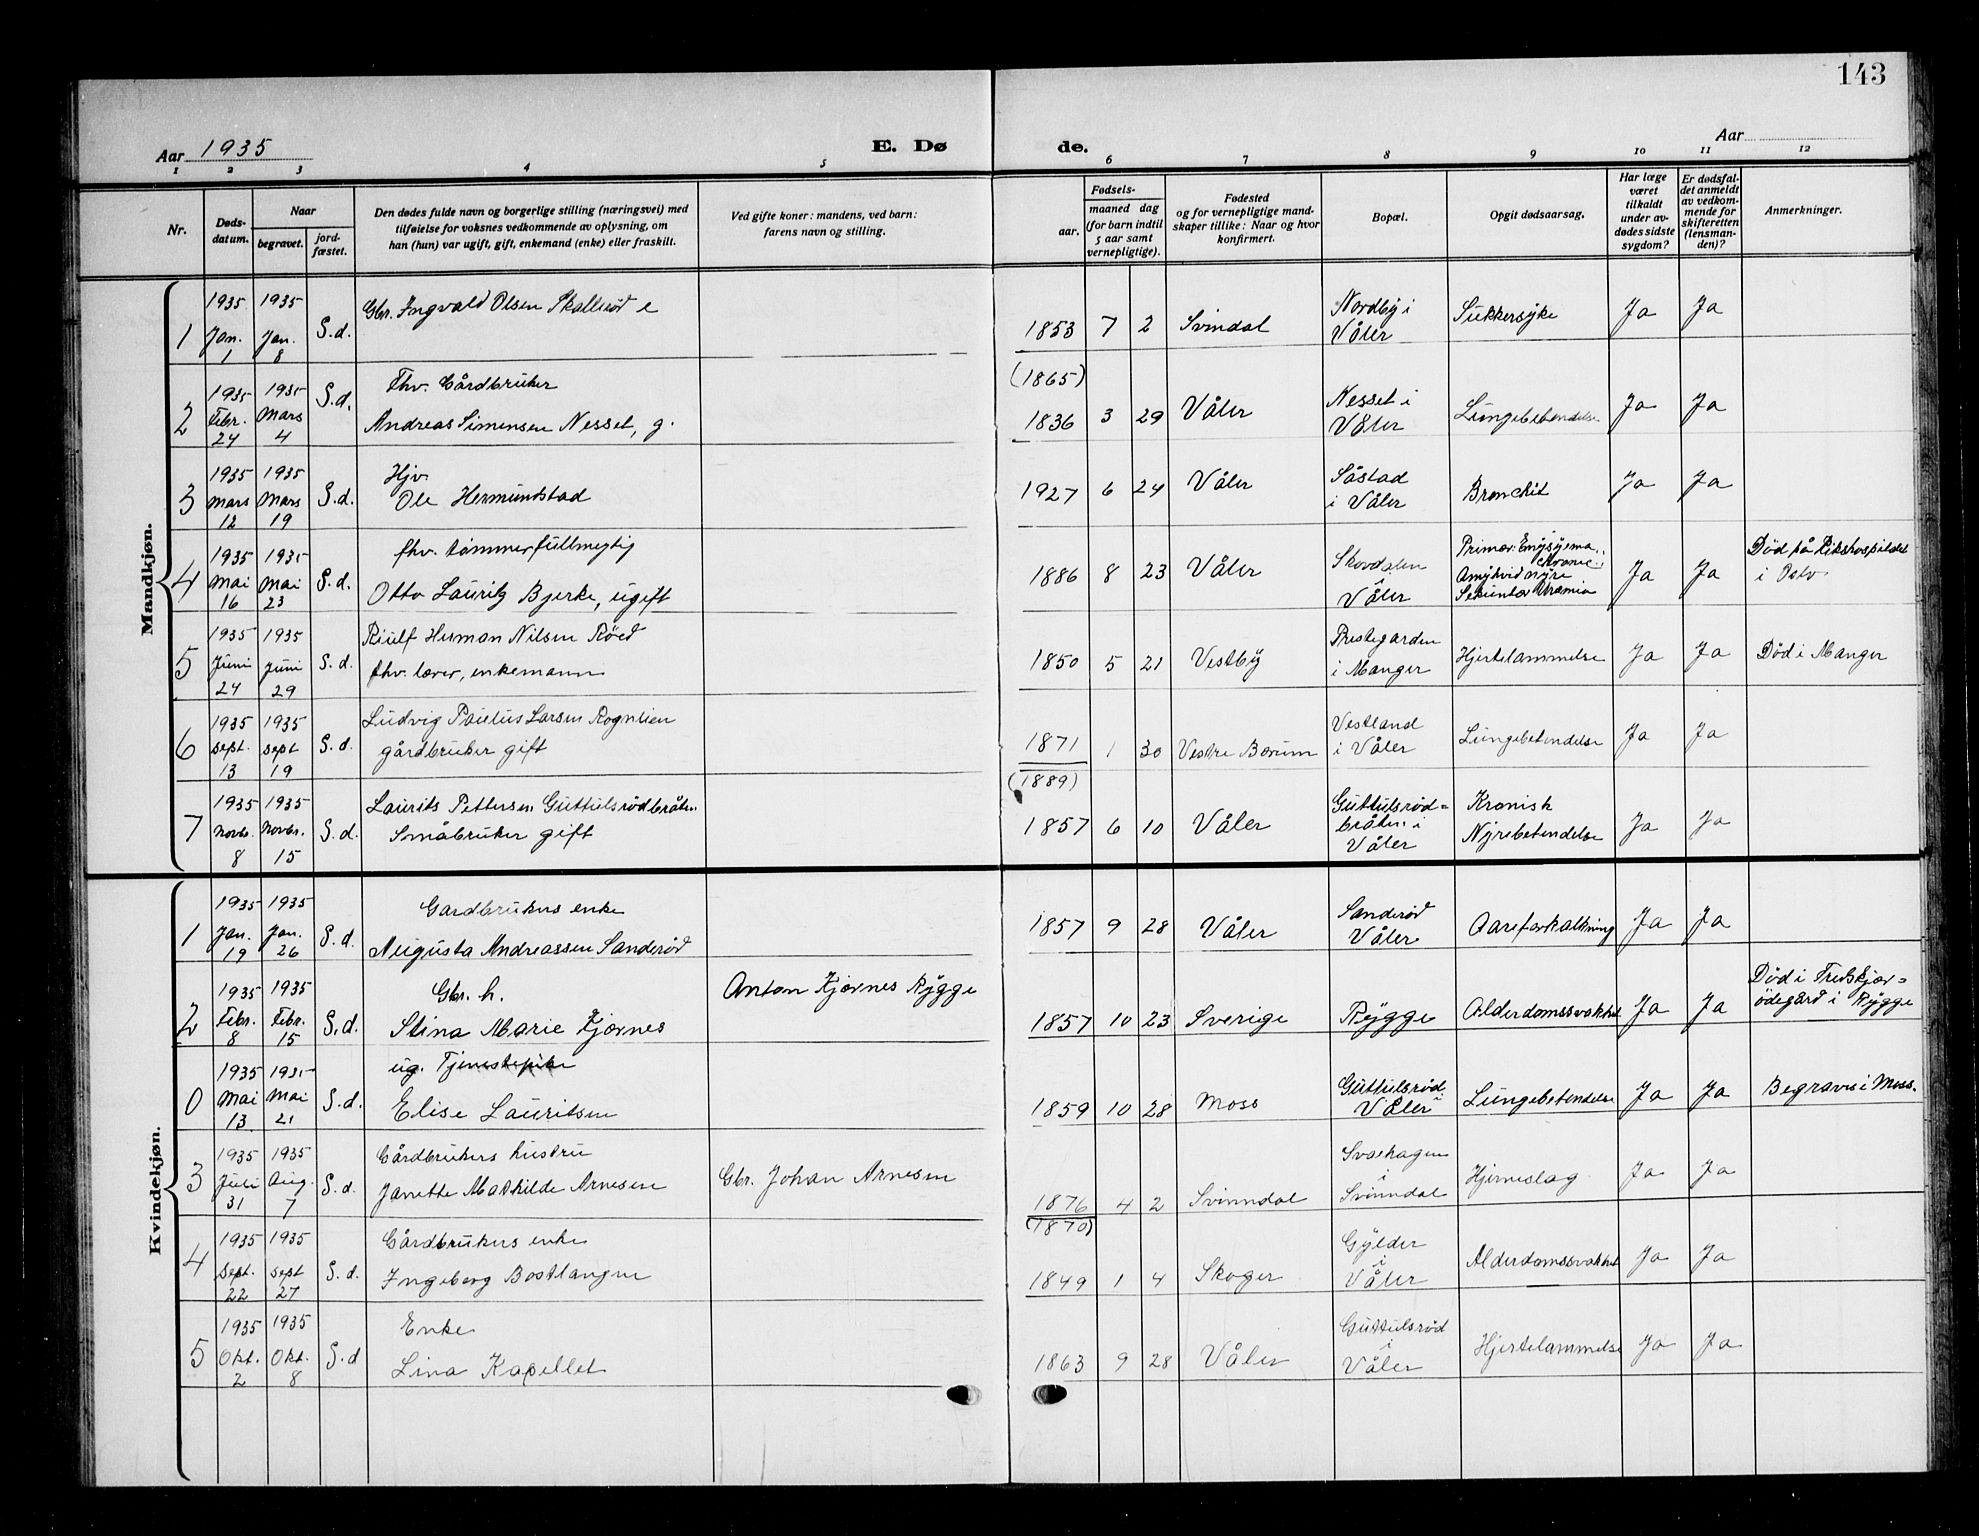 143
Aar 1935
E. Dø
de.
Aar
1 2 3 4 5 6 7 8 9 10 11 12
Nr.
Døds-
datum.
Naar
begravet.
jord-
fæstet.
Den dødes fulde navn og borgerlige stilling (næringsvei) med
tilføielse for voksnes vedkommende av oplysning, om
han (hun) var ugift, gift, enkemand (enke) eller fraskilt.
Ved gifte koner: mandens, ved barn:
farens navn og stilling.
Fødsels-
aar.
maaned dag
(for barn indtil
5 aar samt
vernepligtige).
Fødested
og for vernepligtige mand-
skaper tillike: Naar og hvor
konfirmert.
Bopæl.
Opgit dødsaarsag.
Har læge
været
tilkaldt
under av-
dødes sidste
sygdom?
Er dødsfal-
det anmeldt
av vedkom-
mende for
skifteretten
(lensman-
den)?
Anmerkninger.
Mandkjøn.
1
1935 Jan. 1
1935 Jan. 8
S.d.
Gbr. Ingvald Olsen Skallerød e
1853 7 2
Svindal
Nordby i
Våler
Sukkersyke
Ja
Ja
2
1935 Febr. 24
1935 Mars 4
S.d.
Fhv. Gårdbruker
Andreas Simensen Nesset, g.
(1865)
1836 3 29
Våler
Nesset i
Våler
Lungebetendelse
Ja
Ja
3
1935 Mars 12
1935 Mars 19
S.d.
Hjv.
Ole Hermundstad
1927 6 24
Våler
Såstad
i Våler
Bronchit
Ja
Ja
4
1935 Mai 16
1935 Mai 23
S.d.
fhv. tømmerfullmegtig
Otto Lauritz Bjerke, ugift
1886 8 23
Våler
Skovdalen
i
Våler
Primær: Emysyema
chronic.
Sekundær Uræmia
Ja
Ja
Død på Rikshospitalet
i Oslo
5
1935 Juni 24
1935 Juni 29
S.d.
Herman Nilsen Röed
fhv. lærer, enkemann
1850 5 21
Vestby
Prestegarden
i Manger
Hjertelammelse
Ja
Ja
Død i Manger
6
1935 sept. 13
1935 sept 19
S.d.
Ludvig Paulus Larsen Rognlien
gårdbruker gift
1871 1 30
Vestre Bærum
Vestland
i Våler
Lungebetendelse
Ja
Ja
7
1935 Novbr. 8
1935 Novbr. 15
S.d.
Laurits Pettersen Guttulsrødbråten
Småbruker gift
(1889)
1857 6 10
Våler
Guttulsrød=
bråten i
Våler
Kronisk
Nyrebetendelse
Ja
Ja
Kvindekjøn.
1
1935 Jan. 19
1935 Jan. 26
S.d.
Gardbrukers enke
Augusta Andreassen Sanderød
1857 9 28
Våler
Sanderød
Våler
Aareforkalkning
Ja
Ja
2
1935 Febr. 8
1935 Febr. 15
S.d.
Gbr. h.
Stina Marie Kjærnes
Anton Kjærnes Rygge
1857 10 23
Sverige
Rygge
Alderdomssvakhet
Ja
Ja
Død i
ødegård i Rygge
0
1935 Mai 13
1935 Mai 21
S.d.
ug. Tjenestepike
Elise Lauritsen
1859 10 28
Moss
Guttulsrød
i
Våler
Lungebetendelse
Ja
Ja
Begraves i Moss.
3
1935 Juli 31
1935 Aug. 7
S.d.
Gårdbrukers hustru
Janette Mathilde Arnesen
Gbr. Johan Arnesen
1876 4 2
Svinndal
i
Svinndal
Hjerneslag
Ja
Ja
4
1935 sept. 22
1935 sept 27
S.d.
Gårdbrukers enke
Ingeborg Bostlangen
(1870)
1849 1 4
Skoger
Gylder
i
Våler
Alderdomssvakhet
Ja
Ja
5
1935 Okt. 2
1935 Okt. 8
S.d
Enke
Lina Kapellet
1863 9 28
Våler
Guttulsrød
i
Våler
Hjertelammelse
Ja
Ja